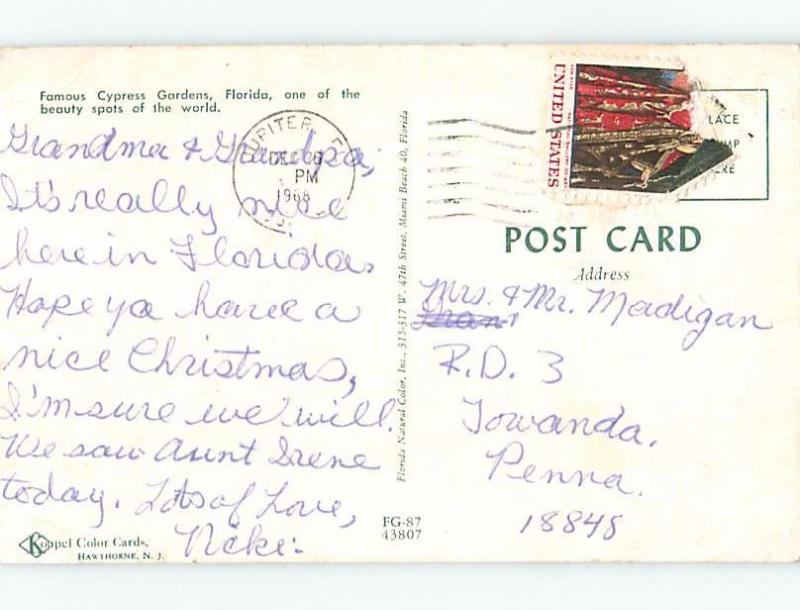 Famous Cypress Gardens, Florida, one of the
beauty spots of the world.
Grandma & Grandpa,
It's really nice
here in Florida.
Hope ya have a
nice Christmas,
I'm sure we will.
We saw Aunt Irene
today. Lots of Love,
Neke:
Koppel Color Cards,
HAWTHORNE, N. J.
FG-87
43807
Florida Natural Color, Inc., 315-317 W. 47th Street, Miami Beach 40, Florida
JUPITER
DEC
PM
1968
UNITED STATES
LACE
MP
ERE
POST CARD
Address
Mrs. & Mr. Madigan
R.D. 3
Towanda,
Penna.
18848